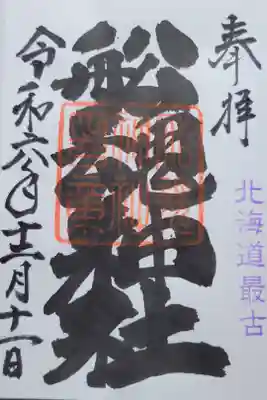 奉拝
北海道最古
船魂神社
令和六年十二月十一日